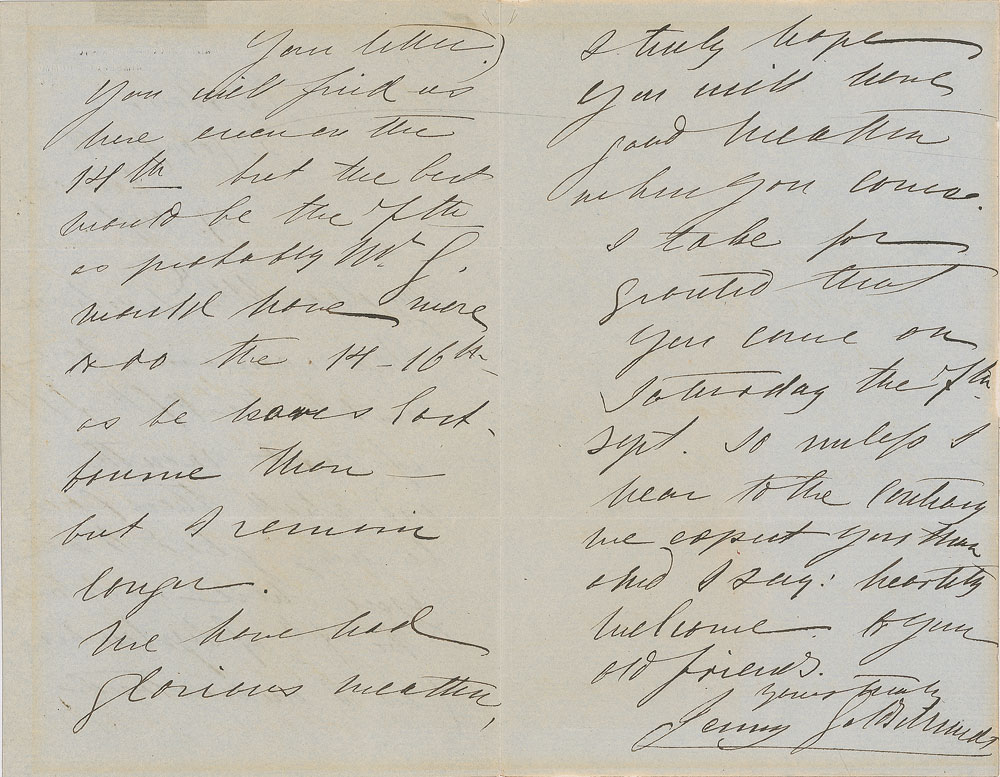 Your letter)
You will find us
here even on the
14th but the best
would be the 7th
as probably Mr G.
would have more
to do the 14-16th
as he leaves East-
bourne then —
but I remain
longer.
We have had
glorious weather,
I truly hope
you will have
good weather
when you come.
I take for
granted that
you come on
Saturday the 7th
Sept. so unless I
hear to the contrary
we expect you then
and I say: heartily
welcome to your
old friends.
Yours truly
Jenny Goldschmidt